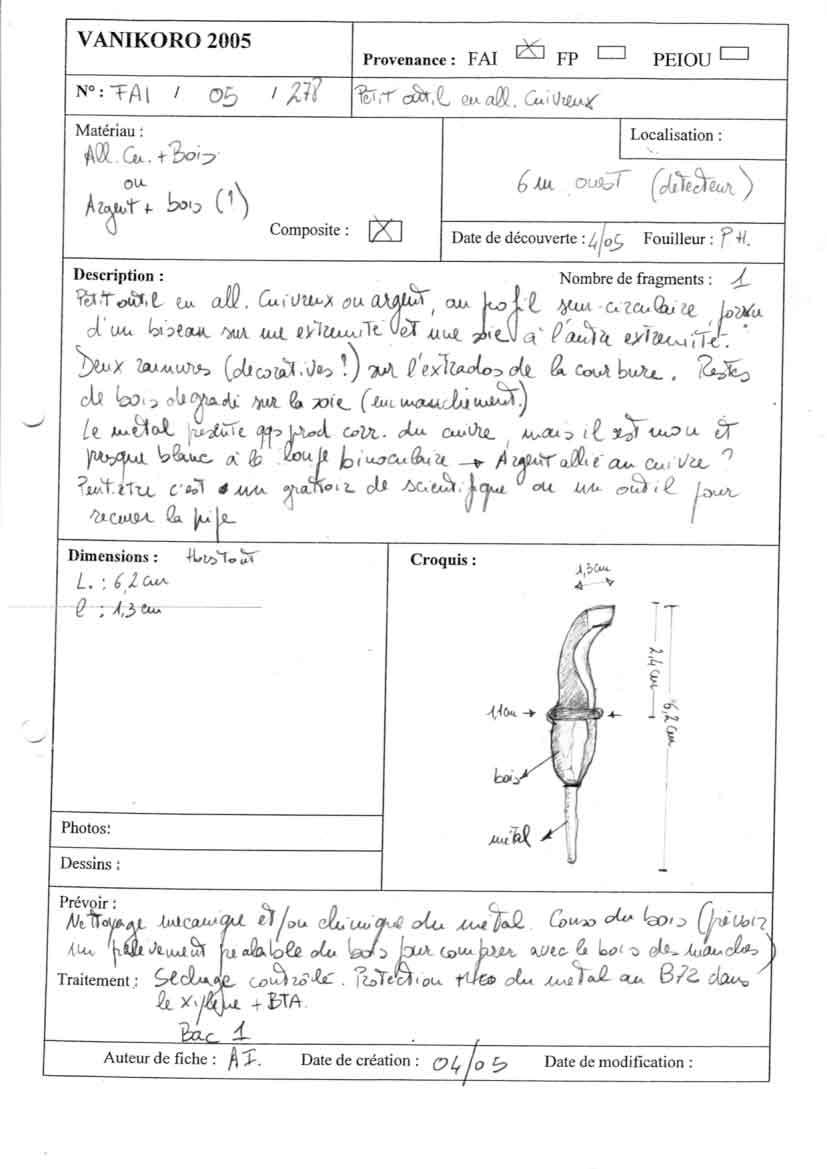 VANIKORO 2005
Provenance : FAI FP PEIOU
N° : FAI / 05 / 278
Petit outil en all. Cuivreux
Matériau :
All. Cu. + Bois
ou
Argent + bois (?)
Composite :
Localisation :
6 m ouest (détecteur)
Date de découverte : 4/05 Fouilleur : P H.
Description :
Nombre de fragments : 1
Petit outil en all. Cuivreux ou argent, au profil semi-circulaire, pourvu
d'un biseau sur une extremité et une soie à l'autre extremité.
Deux rainures (décoratives ?) sur l'extrados de la courbure. Restes
de bois dégradé sur la soie (emmanchement.)
Le métal présente qqs prod corr. du cuivre, mais il est mou et
presque blanc à la loupe binoculaire → Argent allié au cuivre ?
Peut.être c'est un grattoir de scientifique ou un outil pour
recurer la pipe
Dimensions : Hors tout
L. : 6,2 cm
l : 1,3 cm
Croquis :
1,3cm
2,4 cm
6,2 cm
1,1cm
bois
métal
Photos:
Dessins :
Prévoir :
Nettoyage mecanique et/ou chimique du metal. Conso du bois (prévoir
un prélevement prealable du bois pour comparer avec le bois des manches)
Traitement : Sechage contrôlé. Protection du metal au B72 dans
le xylène + BTA.
Bac 1
Auteur de fiche : A I. Date de création : 04/05 Date de modification :